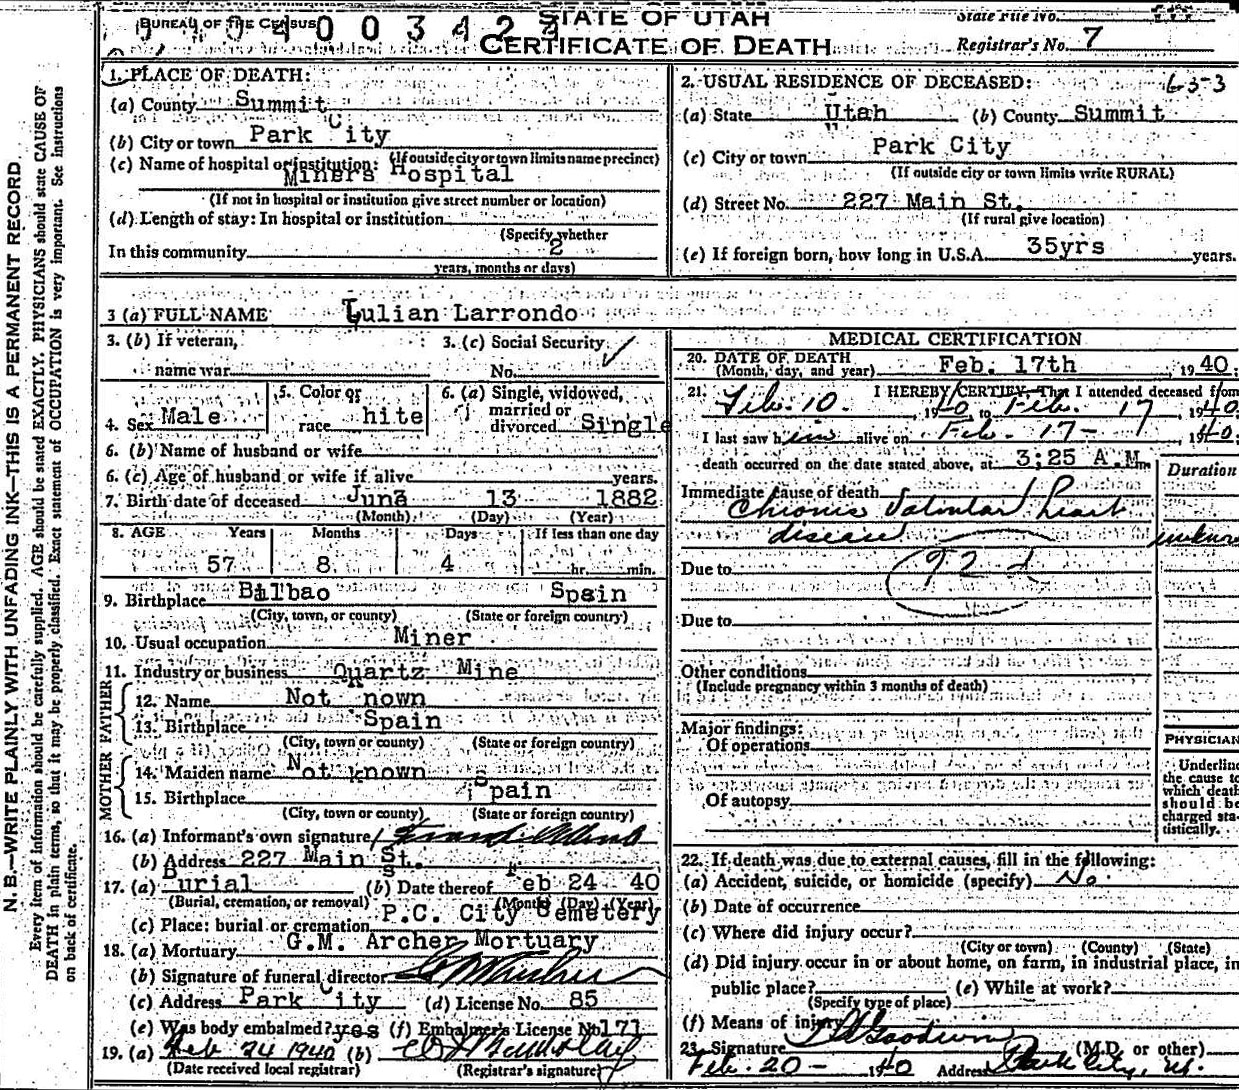 BUREAU OF THE CENSUS
STATE OF UTAH
CERTIFICATE OF DEATH
State File No.
Registrar's No. 7
1. PLACE OF DEATH:
(a) County Summit
(b) City or town Park City
(If outside city or town limits name precinct)
(c) Name of hospital or institution:
Miners Hospital
(If not in hospital or institution give street number or location)
(d) Length of stay: In hospital or institution
(Specify whether
In this community 2
years, months or days)
2. USUAL RESIDENCE OF DECEASED: 6-3-3
(a) State Utah (b) County Summit
(c) City or town Park City
(If outside city or town limits write RURAL)
(d) Street No. 227 Main St.
(If rural give location)
(e) If foreign born, how long in U.S.A. 35yrs years.
3 (a) FULL NAME Lulian Larrondo
3. (b) If veteran,
name war
3. (c) Social Security
No.
4. Sex Male
5. Color or
race hite
6. (a) Single, widowed,
married or
divorced Single
6. (b) Name of husband or wife
6. (c) Age of husband or wife if alive years.
7. Birth date of deceased June 13 1882
(Month) (Day) (Year)
8. AGE Years Months Days If less than one day
57 8 4 hr. min.
9. Birthplace Bilbao Spain
(City, town, or county) (State or foreign country)
10. Usual occupation Miner
11. Industry or business Quartz Mine
FATHER
12. Name Not Known
13. Birthplace Spain
(City, town or county) (State or foreign country)
MOTHER
14. Maiden name Not known
15. Birthplace Spain
(City, town or county) (State or foreign country)
16. (a) Informant's own signature
(b) Address 227 Main St.
17. (a) Burial (b) Date thereof Feb 24 40
(Burial, cremation, or removal) (Month) (Day) (Year)
(c) Place: burial or cremation P.C. City Cemetery
18. (a) Mortuary G.M. Archer Mortuary
(b) Signature of funeral director
(c) Address Park City (d) License No. 85
(e) Was body embalmed? yes (f) Embalmer's License No 171
19. (a) Feb 24 1940 (b)
(Date received local registrar) (Registrar's signature)
MEDICAL CERTIFICATION
20. DATE OF DEATH
(Month, day, and year) Feb. 17th, 1940;
21. I HEREBY CERTIFY, That I attended deceased from
Feb. 10., 1940 to Feb. 17, 1940;
I last saw him alive on Feb. 17-, 1940;
death occurred on the date stated above, at 3;25 A.M. m.
Duration
Immediate cause of death
Chronic Valvular heart
disease
Due to 92-d
Due to
Other conditions
(Include pregnancy within 3 months of death)
Major findings:
Of operations
Of autopsy
PHYSICIAN
Underline
the cause to
which death
should be
charged sta-
tistically.
22. If death was due to external causes, fill in the following:
(a) Accident, suicide, or homicide (specify) No.
(b) Date of occurrence
(c) Where did injury occur?
(City or town) (County) (State)
(d) Did injury occur in or about home, on farm, in industrial place, in
public place? (e) While at work?
(Specify type of place)
(f) Means of injury
23. Signature (M.D. or other)
Feb. 20 - 1940 Address Park City, Ut.
N. B.—WRITE PLAINLY WITH UNFADING INK—THIS IS A PERMANENT RECORD
Every item of information should be carefully supplied. AGE should be stated EXACTLY. PHYSICIANS should state CAUSE OF
DEATH in plain terms, so that it may be properly classified. Exact statement of OCCUPATION is very important. See instructions
on back of certificate.